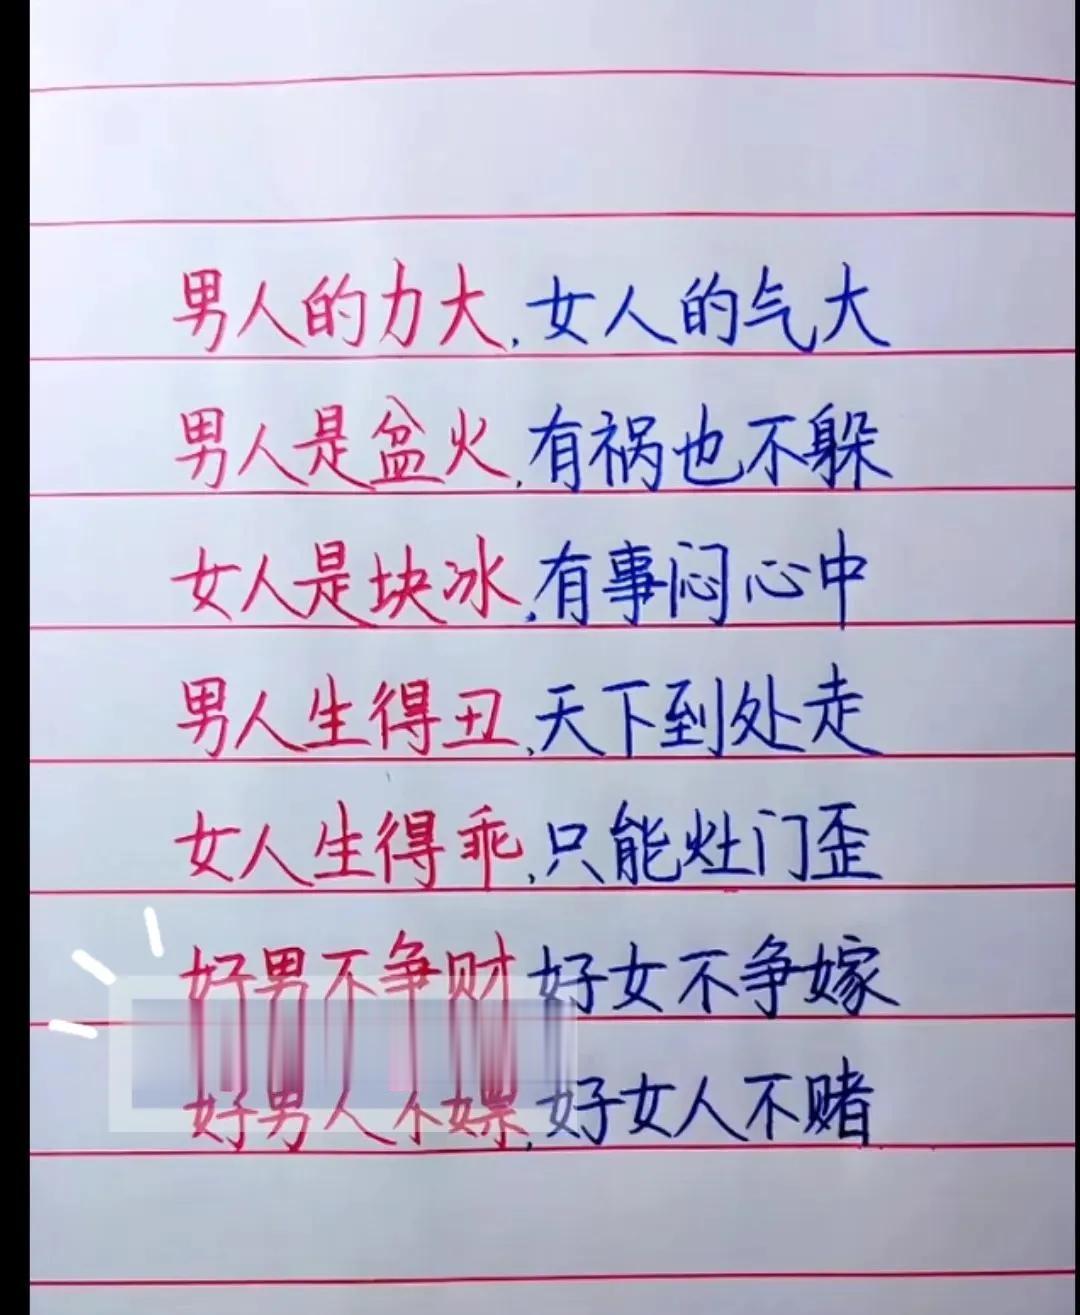 男人的力大,女人的气大
男人是盆火,有祸也不躲
女人是块冰,有事闷心中
男人生得丑,天下到处走
女人生得乖,只能灶门歪
好男不争财 好女不争嫁
好男人不嫖,好女人不赌